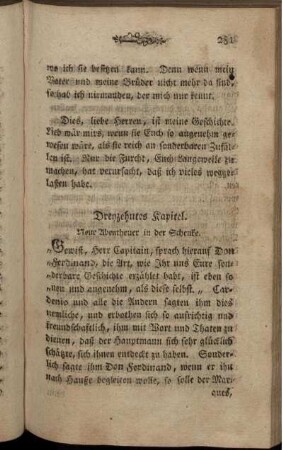 281
wo ich sie besitzen kann. Denn wenn mein
Vater und meine Brüder nicht mehr da sind,
so hab ich niemanden, der mich nur kennt.
Dies, liebe Herren, ist meine Geschichte.
Lieb wär mirs, wenn sie Euch so angenehm ge-
wesen wäre, als sie reich an sonderbaren Zufäl-
len ist. Nur die Furcht, Euch Langeweile zu
machen, hat verursacht, daß ich vieles wegge-
lassen habe.
Dreyzehntes Kapitel.
Neue Abentheuer in der Schenke.
„Gewiß, Herr Capitain, sprach hierauf Don
„Ferdinand, die Art, wie Ihr uns Eure son-
„derbare Geschichte erzählt habt, ist eben so
„neu und angenehm, als diese selbst.„ Car-
denio und alle die Andern sagten ihm dies
nemliche, und erbothen sich so aufrichtig und
freundschaftlich, ihm mit Wort und Thaten zu
dienen, daß der Hauptmann sich sehr glücklich
schätzte, sich ihnen entdeckt zu haben. Sonder-
lich sagte ihm Don Ferdinand, wenn er ihn
nach Hauße begleiten wolle, so solle der Mar-
ques,